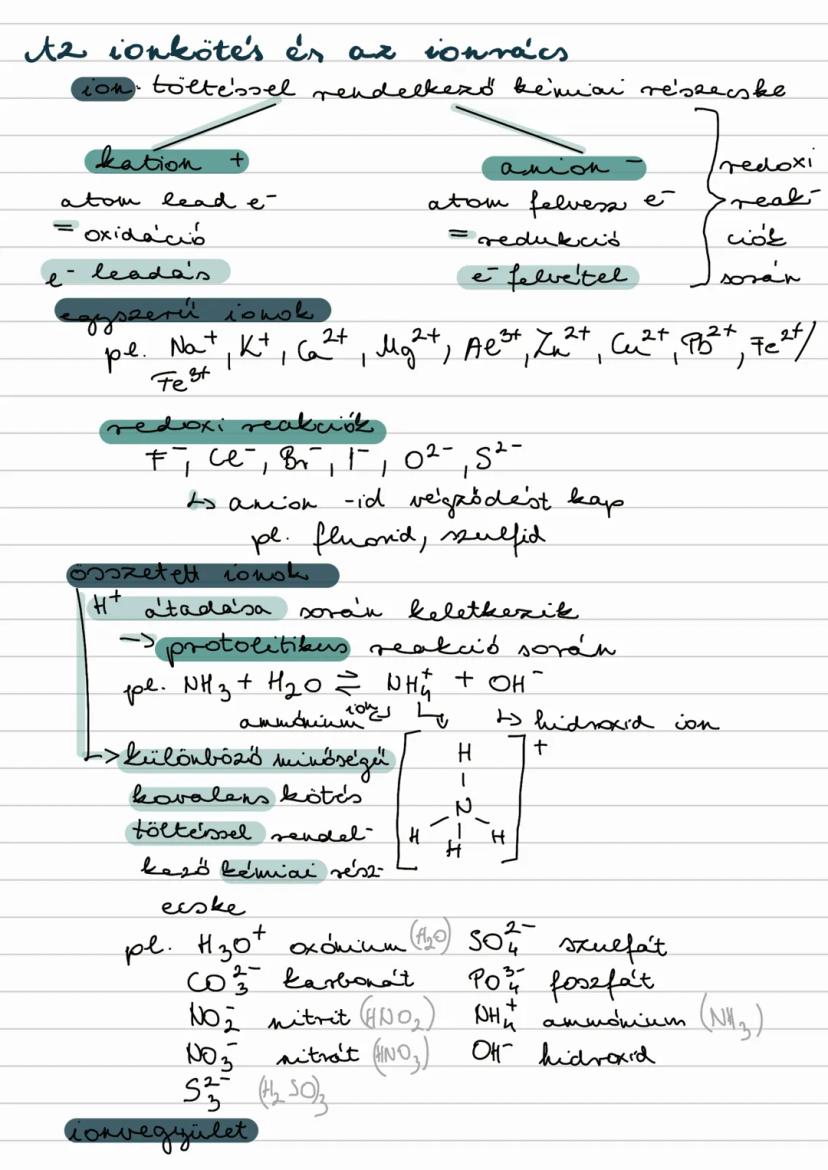 Az ionkötés és az ionrács
ion: töltéssel rendelkező kémiai részecske
kation +
atom lead e⁻
= oxidáció
e⁻ leadás
anion −
atom felvesz e⁻
= redukció
e⁻ felvétel
redoxi
reak-
ciók
során
egyszerű ionok
pl. Na⁺, K⁺, Ca²⁺, Mg²⁺, Al³⁺, Zn²⁺, Cu²⁺, Pb²⁺, Fe²⁺/
Fe³⁺
redoxi reakciók
F⁻, Cl⁻, Br⁻, I⁻, O²⁻, S²⁻
↳ anion -id végződést kap
pl. fluorid, szulfid
összetett ionok
H⁺ átadása során keletkezik
→ protolitikus reakció során
pl. NH₃ + H₂O ⇌ NH₄⁺ + OH⁻
ammónium ion ↳ hidroxid ion
→ különböző minőségű
kovalens kötés
töltéssel rendel-
kező kémiai rész-
ecske
[H
N
H H H]⁺
pl. H₃O⁺ oxónium (H₂O) SO₄²⁻ szulfát
CO₃²⁻ karbonát PO₄³⁻ foszfát
NO₂⁻ nitrit (HNO₂) NH₄⁺ ammónium (NH₃)
NO₃⁻ nitrát (HNO₃) OH⁻ hidroxid
S₃²⁻ (H₂SO)₃
ionvegyület